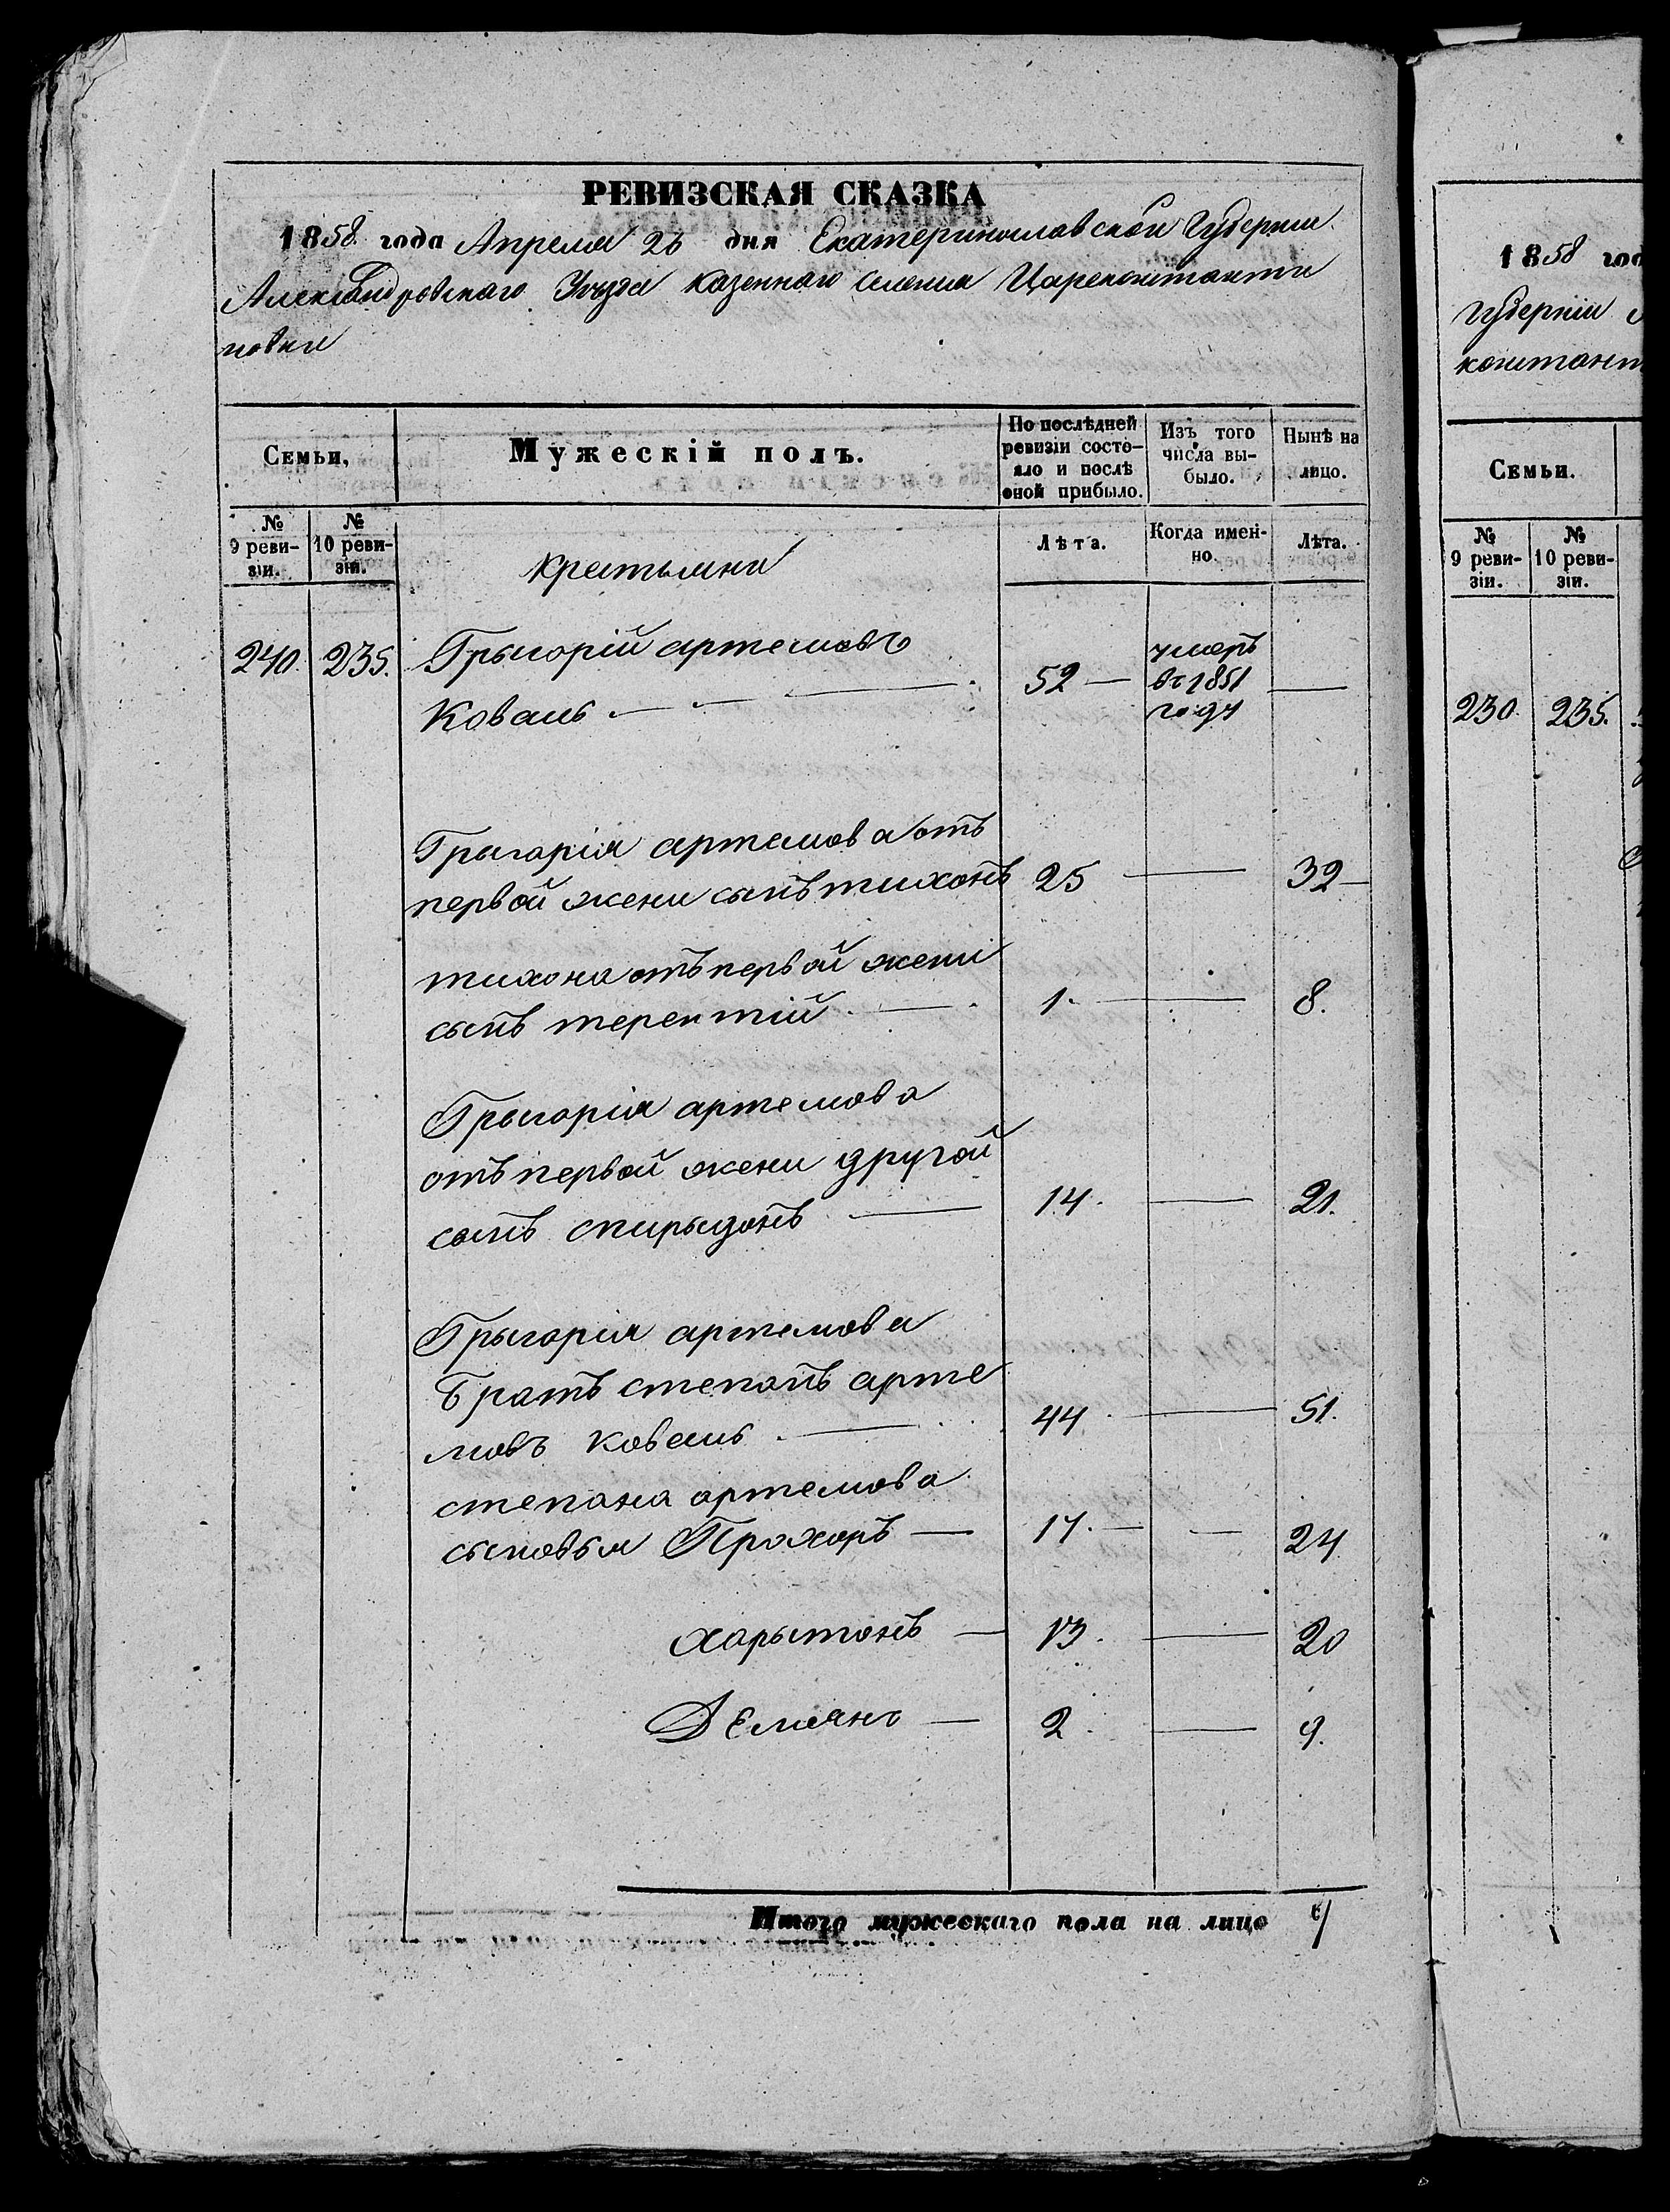 РЕВИЗСКАЯ СКАЗКА
1858 года Апреля 26 дня Екатеринославской Губернии
Александровского Уѣзда казеннаго Селения Цареконстанти
новки
Семьи,
Мужескій полъ.
По послѣдней ревизіи состояло и послѣ оной прибыло.
Изъ того числа выбыло.
Нынѣ на лицо.
№ 9 ревизіи.
№ 10 ревизіи.
крестьяни
Лѣта.
Когда именно.
Лѣта.
240. 235. Грыгорій артемовъ
Коваль — — 52 — умеръ въ 1851 году —
Грыгорія артемова отъ
первой жени сынъ тихонъ 25 — 32 —
тихона отъ первой жени
сынъ терентій — 1. — 8.
Грыгорія артемова
отъ первой жени другой
сынъ спирыдонъ — 14. — 21.
Грыгорія артемова
братъ степанъ арте
мовъ коваль — 44. — 51.
степана артемова
сыновья Прохоръ — 17. — — 24
харытонъ — 13. — 20
Демянъ — 2. — 9.
Итого мужескаго пола на лицо
1858 год
губерніи
констант
Семьи.
№ 9 ревизіи.
№ 10 ревизіи.
230. 235.